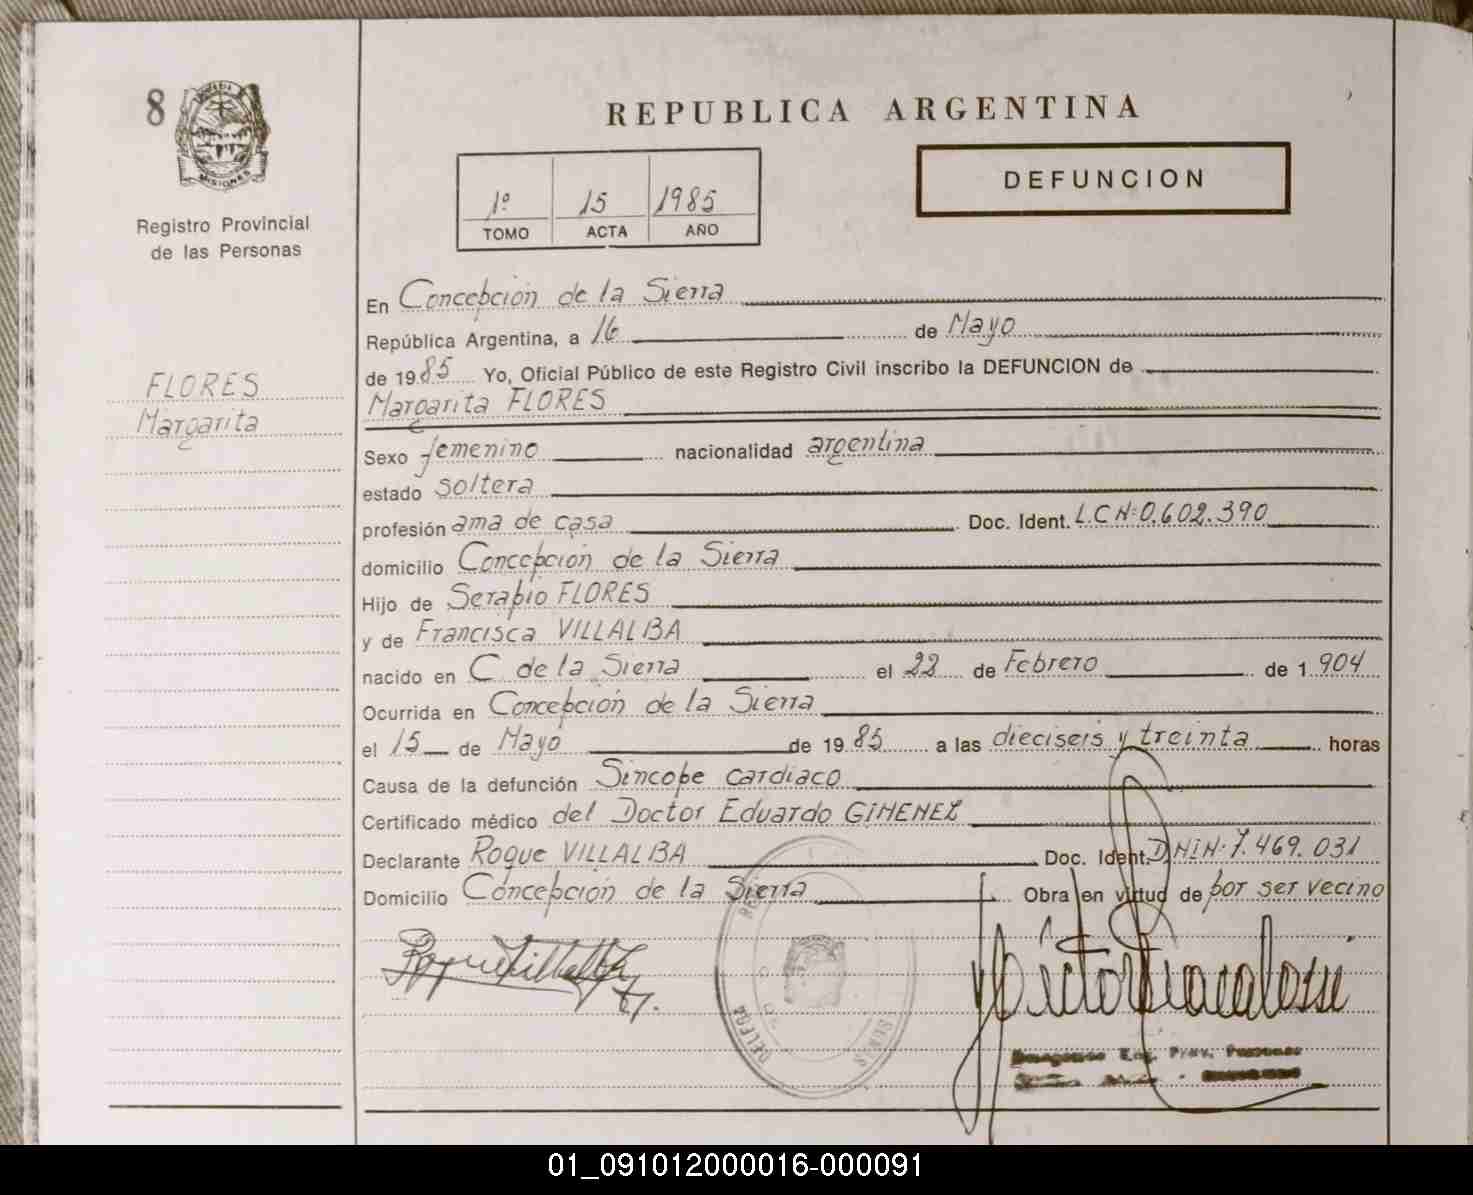 8
MISIONES
Registro Provincial
de las Personas
FLORES
Margarita
REPUBLICA ARGENTINA
1º 15 1985
TOMO ACTA AÑO
DEFUNCION
En Concepción de la Sierra
República Argentina, a 16 de Mayo
de 1985 Yo, Oficial Público de este Registro Civil inscribo la DEFUNCION de
Margarita FLORES
Sexo femenino nacionalidad argentina
estado soltera
profesión ama de casa Doc. Ident. L.C Nº 0.602.390
domicilio Concepción de la Sierra
Hijo de Serapio FLORES
y de Francisca VILLALBA
nacido en C. de la Sierra el 22 de Febrero de 1.904
Ocurrida en Concepción de la Sierra
el 15 de Mayo de 1985 a las dieciseis y treinta horas
Causa de la defunción Sincope cardiaco
Certificado médico del Doctor Eduardo GIMENEZ
Declarante Roque VILLALBA Doc. Ident. D.N.I Nº 7.469.031
Domicilio Concepción de la Sierra Obra en virtud de por ser vecino
Roque Villalba
Prov. Personas
01_091012000016-000091